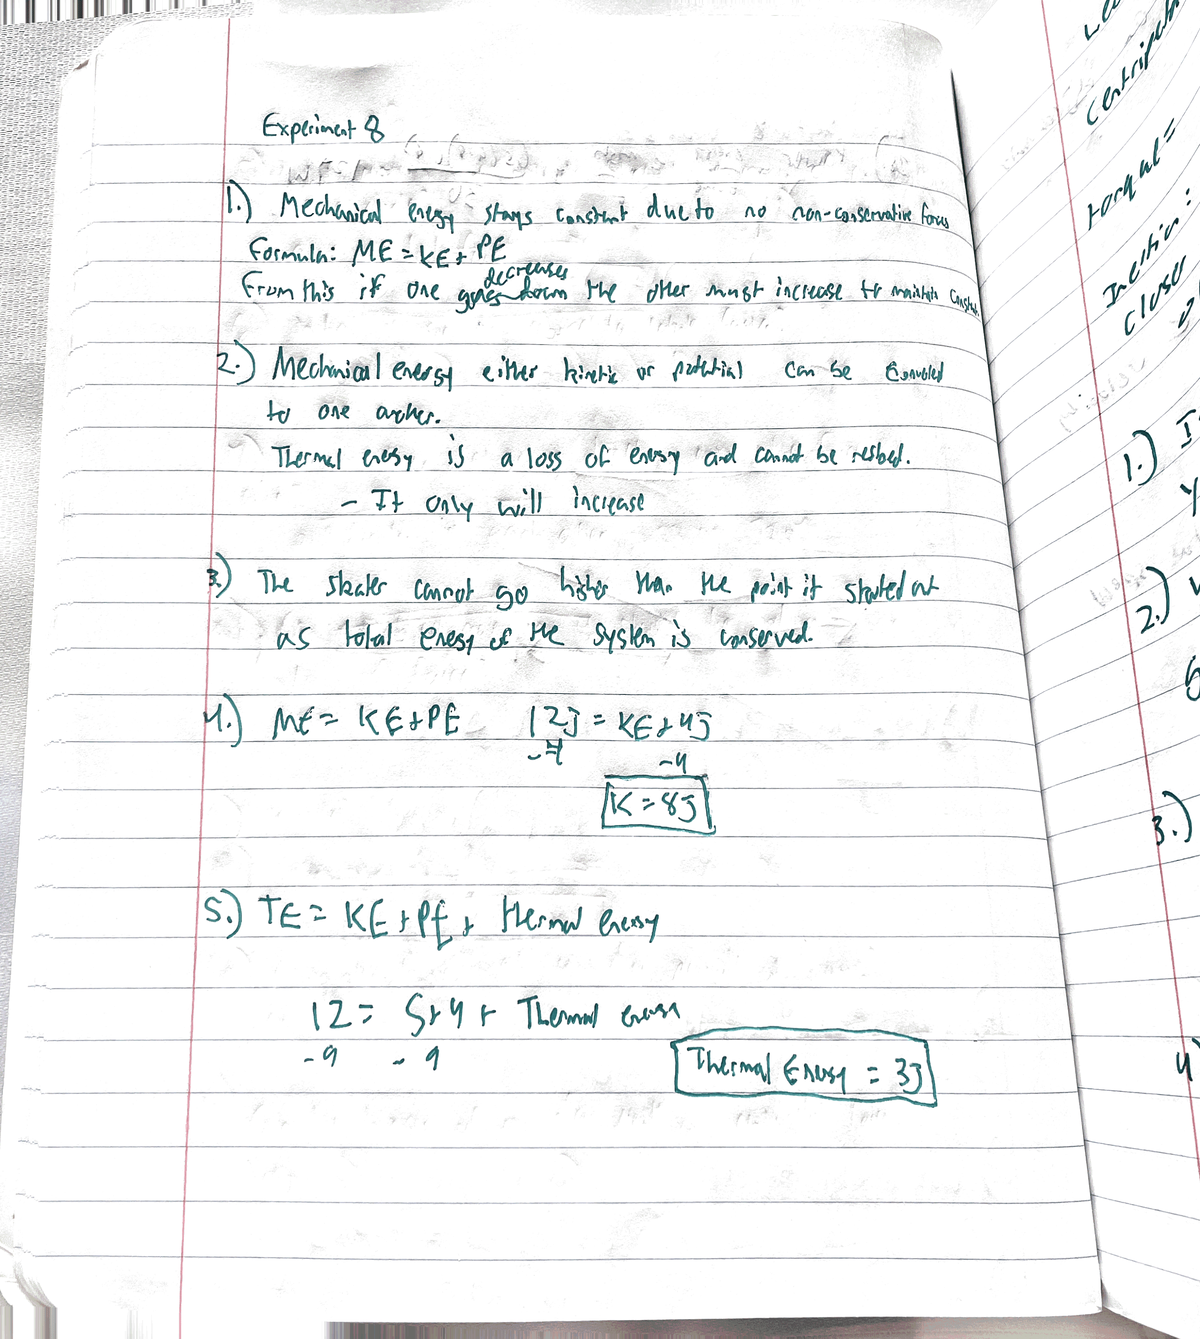 Experiment 8
1.) Mechanical energy stays constant due to no non-conservative forces
Formula: ME = KE + PE
decreases
From this if one goes down the other must increase to maintain constant.
2.) Mechanical energy either kinetic or potential can be
to one another.
Thermal energy is a loss of energy and cannot be
- It only will increase
3.) The skater cannot go higher than the point it started at
as total energy of the system is conserved.
4.) ME = KE + PE 12J = KE + 4J
-4 -4
K = 8J
5.) TE = KE + PE + thermal energy
12 = 5 + 4 + Thermal energy
-9 -9
Thermal Energy = 3J
centripetal
torque =
closer
1.) I
2.)
3.)
4